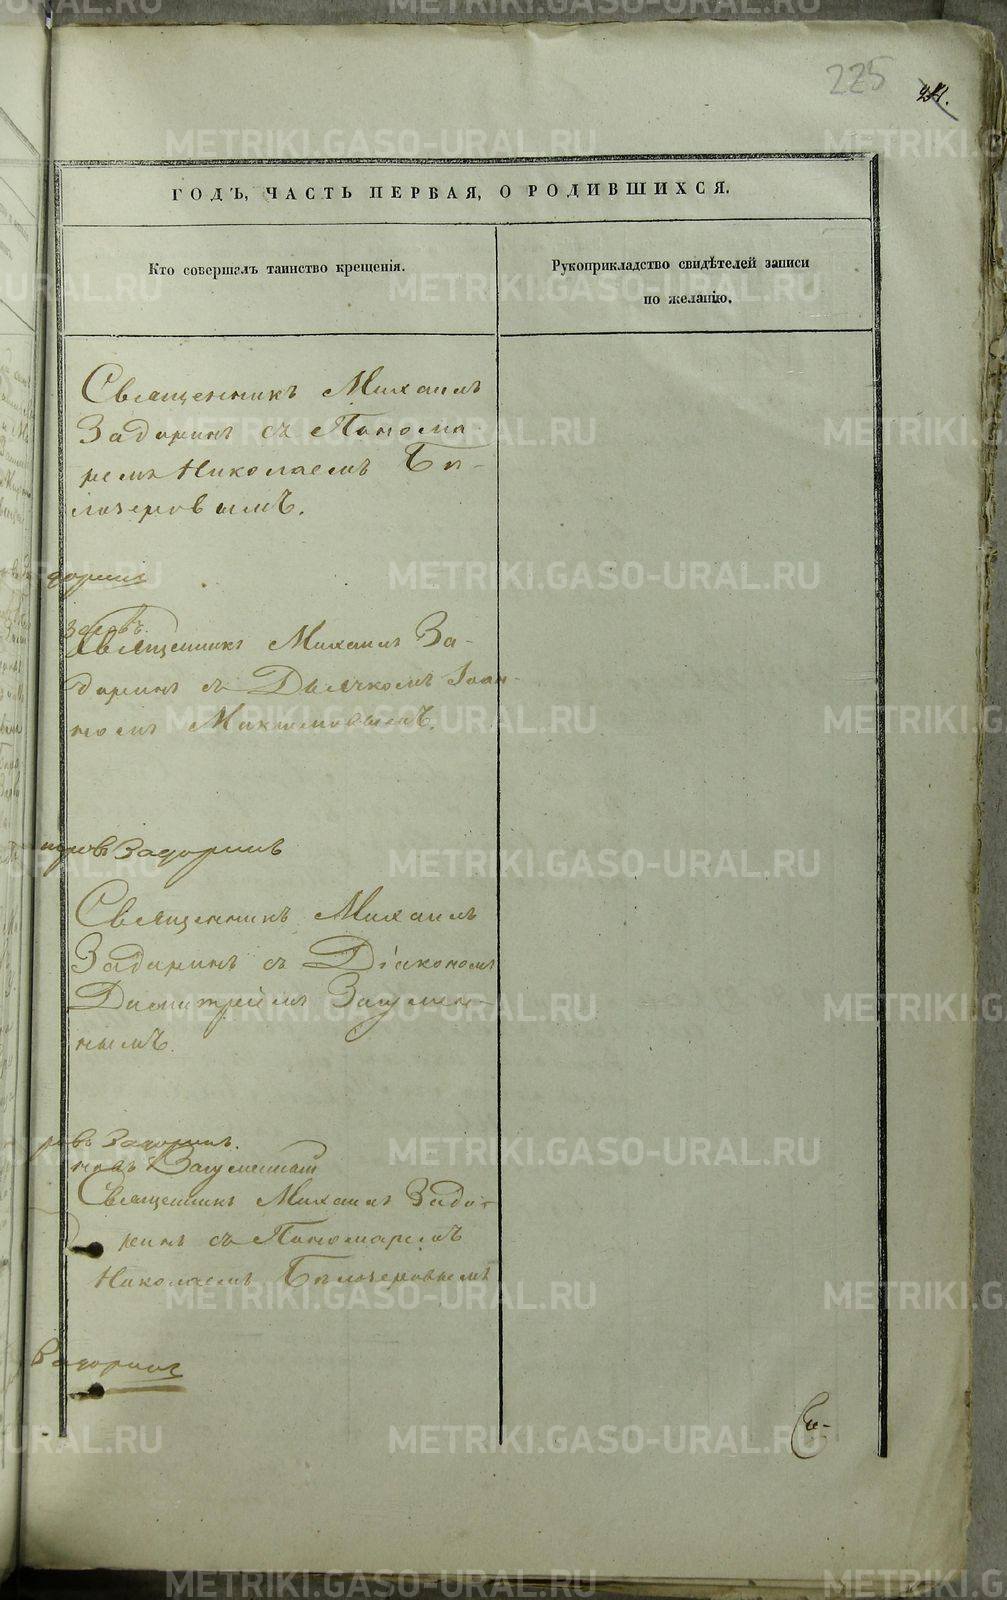 225
ГОДЪ, ЧАСТЬ ПЕРВАЯ, О РОДИВШИХСЯ.
Кто совершалъ таинство крещенія.
Рукоприкладство свидѣтелей записи
по желанію.
Священникъ Михаилъ
Задоринъ съ Понома-
ремъ Николаемъ Бѣ-
лочеровымъ.
доринъ
Священникъ Михаилъ За-
доринъ съ Дьячкомъ Іоан-
номъ Максимовымъ.
Задоринъ
Священникъ Михаилъ
Задоринъ съ Діакономъ
Димитріемъ Загумен-
нымъ.
ровъ Задоринъ.
Загуменный
Священникъ Михаилъ Задо-
ринъ съ Пономаремъ
Николаемъ Бѣлочеровымъ
Задоринъ
METRIKI.GASO-URAL.RU